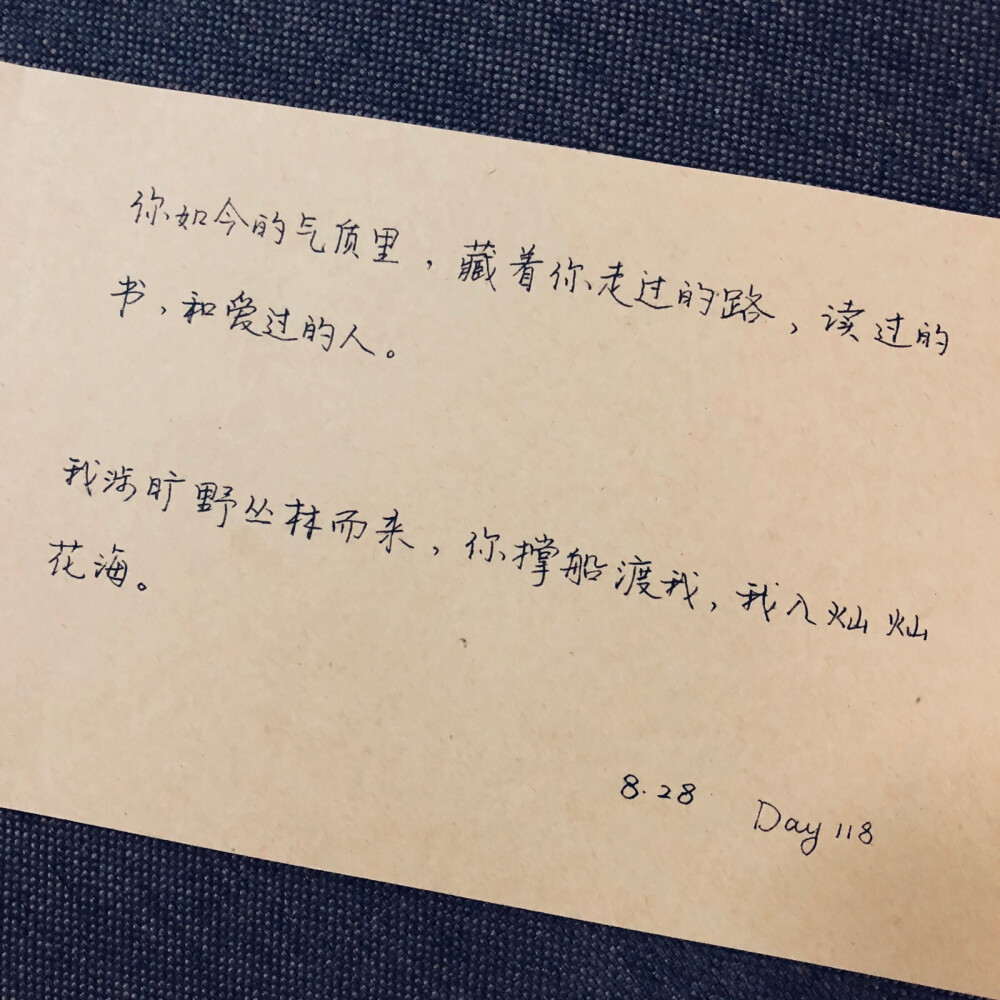 你如今的气质里，藏着你走过的路，读过的
书，和爱过的人。
我涉旷野丛林而来，你撑船渡我，我入灿灿
花海。
8.28 Day 118